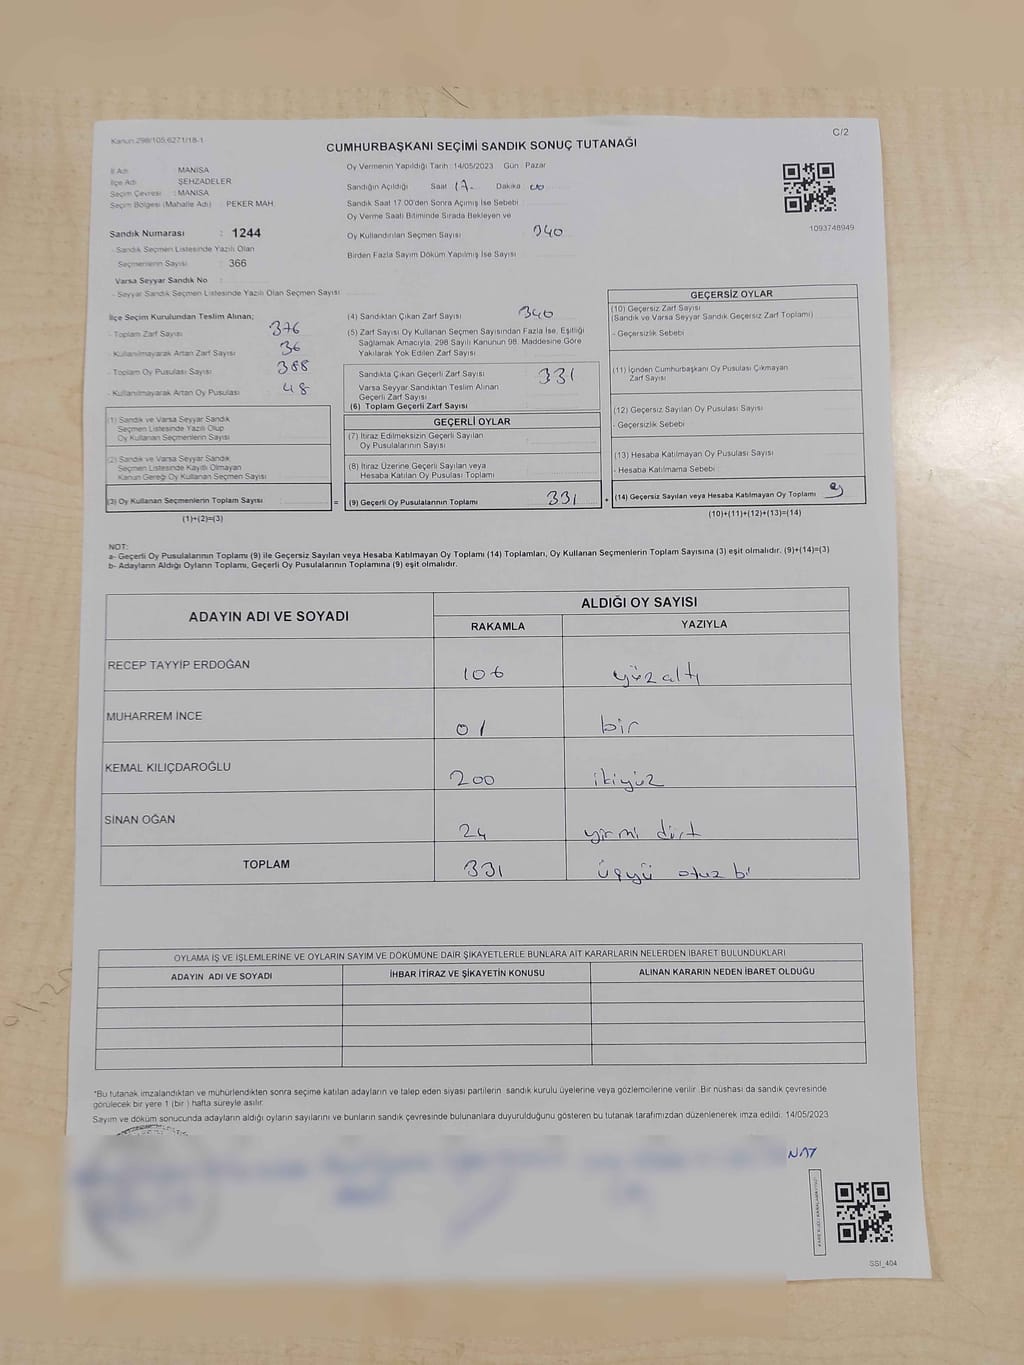 Kanun 298/105,6271/18-1
C/2
CUMHURBAŞKANI SEÇİMİ SANDIK SONUÇ TUTANAĞI
İl Adı : MANİSA
İlçe Adı : ŞEHZADELER
Seçim Çevresi : MANİSA
Seçim Bölgesi (Mahalle Adı) : PEKER MAH.
Sandık Numarası : 1244
- Sandık Seçmen Listesinde Yazılı Olan
Seçmenlerin Sayısı : 366
Varsa Seyyar Sandık No :
- Seyyar Sandık Seçmen Listesinde Yazılı Olan Seçmen Sayısı
Oy Vermenin Yapıldığı Tarih : 14/05/2023 Gün : Pazar
Sandığın Açıldığı Saat 17 Dakika 00
Sandık Saat 17.00'den Sonra Açımış İse Sebebi :
Oy Verme Saati Bitiminde Sırada Bekleyen ve
Oy Kullandırılan Seçmen Sayısı : 340
Birden Fazla Sayım Döküm Yapılmış İse Sayısı :
1093748949
İlçe Seçim Kurulundan Teslim Alınan;
- Toplam Zarf Sayısı : 376
- Kullanılmayarak Artan Zarf Sayısı : 36
- Toplam Oy Pusulası Sayısı : 388
- Kullanılmayarak Artan Oy Pusulası : 48
(1) Sandık ve Varsa Seyyar Sandık
Seçmen Listesinde Yazılı Olup
Oy Kullanan Seçmenlerin Sayısı
(2) Sandık ve Varsa Seyyar Sandık
Seçmen Listesinde Kayıtlı Olmayan
Kanun Gereği Oy Kullanan Seçmen Sayısı
(3) Oy Kullanan Seçmenlerin Toplam Sayısı
(1)+(2)=(3)
=
(4) Sandıktan Çıkan Zarf Sayısı : 340
(5) Zarf Sayısı Oy Kullanan Seçmen Sayısından Fazla İse, Eşitliği
Sağlamak Amacıyla, 298 Sayılı Kanunun 98. Maddesine Göre
Yakılarak Yok Edilen Zarf Sayısı
Sandıkta Çıkan Geçerli Zarf Sayısı : 331
Varsa Seyyar Sandıktan Teslim Alınan
Geçerli Zarf Sayısı
(6) Toplam Geçerli Zarf Sayısı
GEÇERLİ OYLAR
(7) İtiraz Edilmeksizin Geçerli Sayılan
Oy Pusulalarının Sayısı
(8) İtiraz Üzerine Geçerli Sayılan veya
Hesaba Katılan Oy Pusulası Toplamı
(9) Geçerli Oy Pusulalarının Toplamı 331
+
GEÇERSİZ OYLAR
(10) Geçersiz Zarf Sayısı
(Sandık ve Varsa Seyyar Sandık Geçersiz Zarf Toplamı)
- Geçersizlik Sebebi
(11) İçinden Cumhurbaşkanı Oy Pusulası Çıkmayan
Zarf Sayısı
(12) Geçersiz Sayılan Oy Pusulası Sayısı
- Geçersizlik Sebebi
(13) Hesaba Katılmayan Oy Pusulası Sayısı
- Hesaba Katılmama Sebebi
(14) Geçersiz Sayılan veya Hesaba Katılmayan Oy Toplamı 9
(10)+(11)+(12)+(13)=(14)
NOT:
a- Geçerli Oy Pusulalarının Toplamı (9) ile Geçersiz Sayılan veya Hesaba Katılmayan Oy Toplamı (14) Toplamları, Oy Kullanan Seçmenlerin Toplam Sayısına (3) eşit olmalıdır. (9)+(14)=(3)
b- Adayların Aldığı Oyların Toplamı, Geçerli Oy Pusulalarının Toplamına (9) eşit olmalıdır.
ADAYIN ADI VE SOYADI
ALDIĞI OY SAYISI
RAKAMLA YAZIYLA
RECEP TAYYİP ERDOĞAN 106 yüzaltı
MUHARREM İNCE 01 bir
KEMAL KILIÇDAROĞLU 200 ikiyüz
SİNAN OĞAN 24 yirmi dört
TOPLAM 331 üçyü otuz bi
OYLAMA İŞ VE İŞLEMLERİNE VE OYLARIN SAYIM VE DÖKÜMÜNE DAİR ŞİKAYETLERLE BUNLARA AİT KARARLARIN NELERDEN İBARET BULUNDUKLARI
ADAYIN ADI VE SOYADI İHBAR İTİRAZ VE ŞİKAYETİN KONUSU ALINAN KARARIN NEDEN İBARET OLDUĞU
*Bu tutanak imzalandıktan ve mühürlendikten sonra seçime katılan adayların ve talep eden siyasi partilerin sandık kurulu üyelerine veya gözlemcilerine verilir. Bir nüshası da sandık çevresinde
görülecek bir yere 1 (bir) hafta süreyle asılır.
Sayım ve döküm sonucunda adayların aldığı oyların sayılarını ve bunların sandık çevresinde bulunanlara duyurulduğunu gösteren bu tutanak tarafımızdan düzenlenerek imza edildi. 14/05/2023
SSI_404